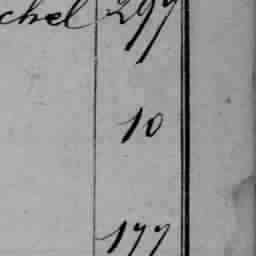 chel 297
10
177